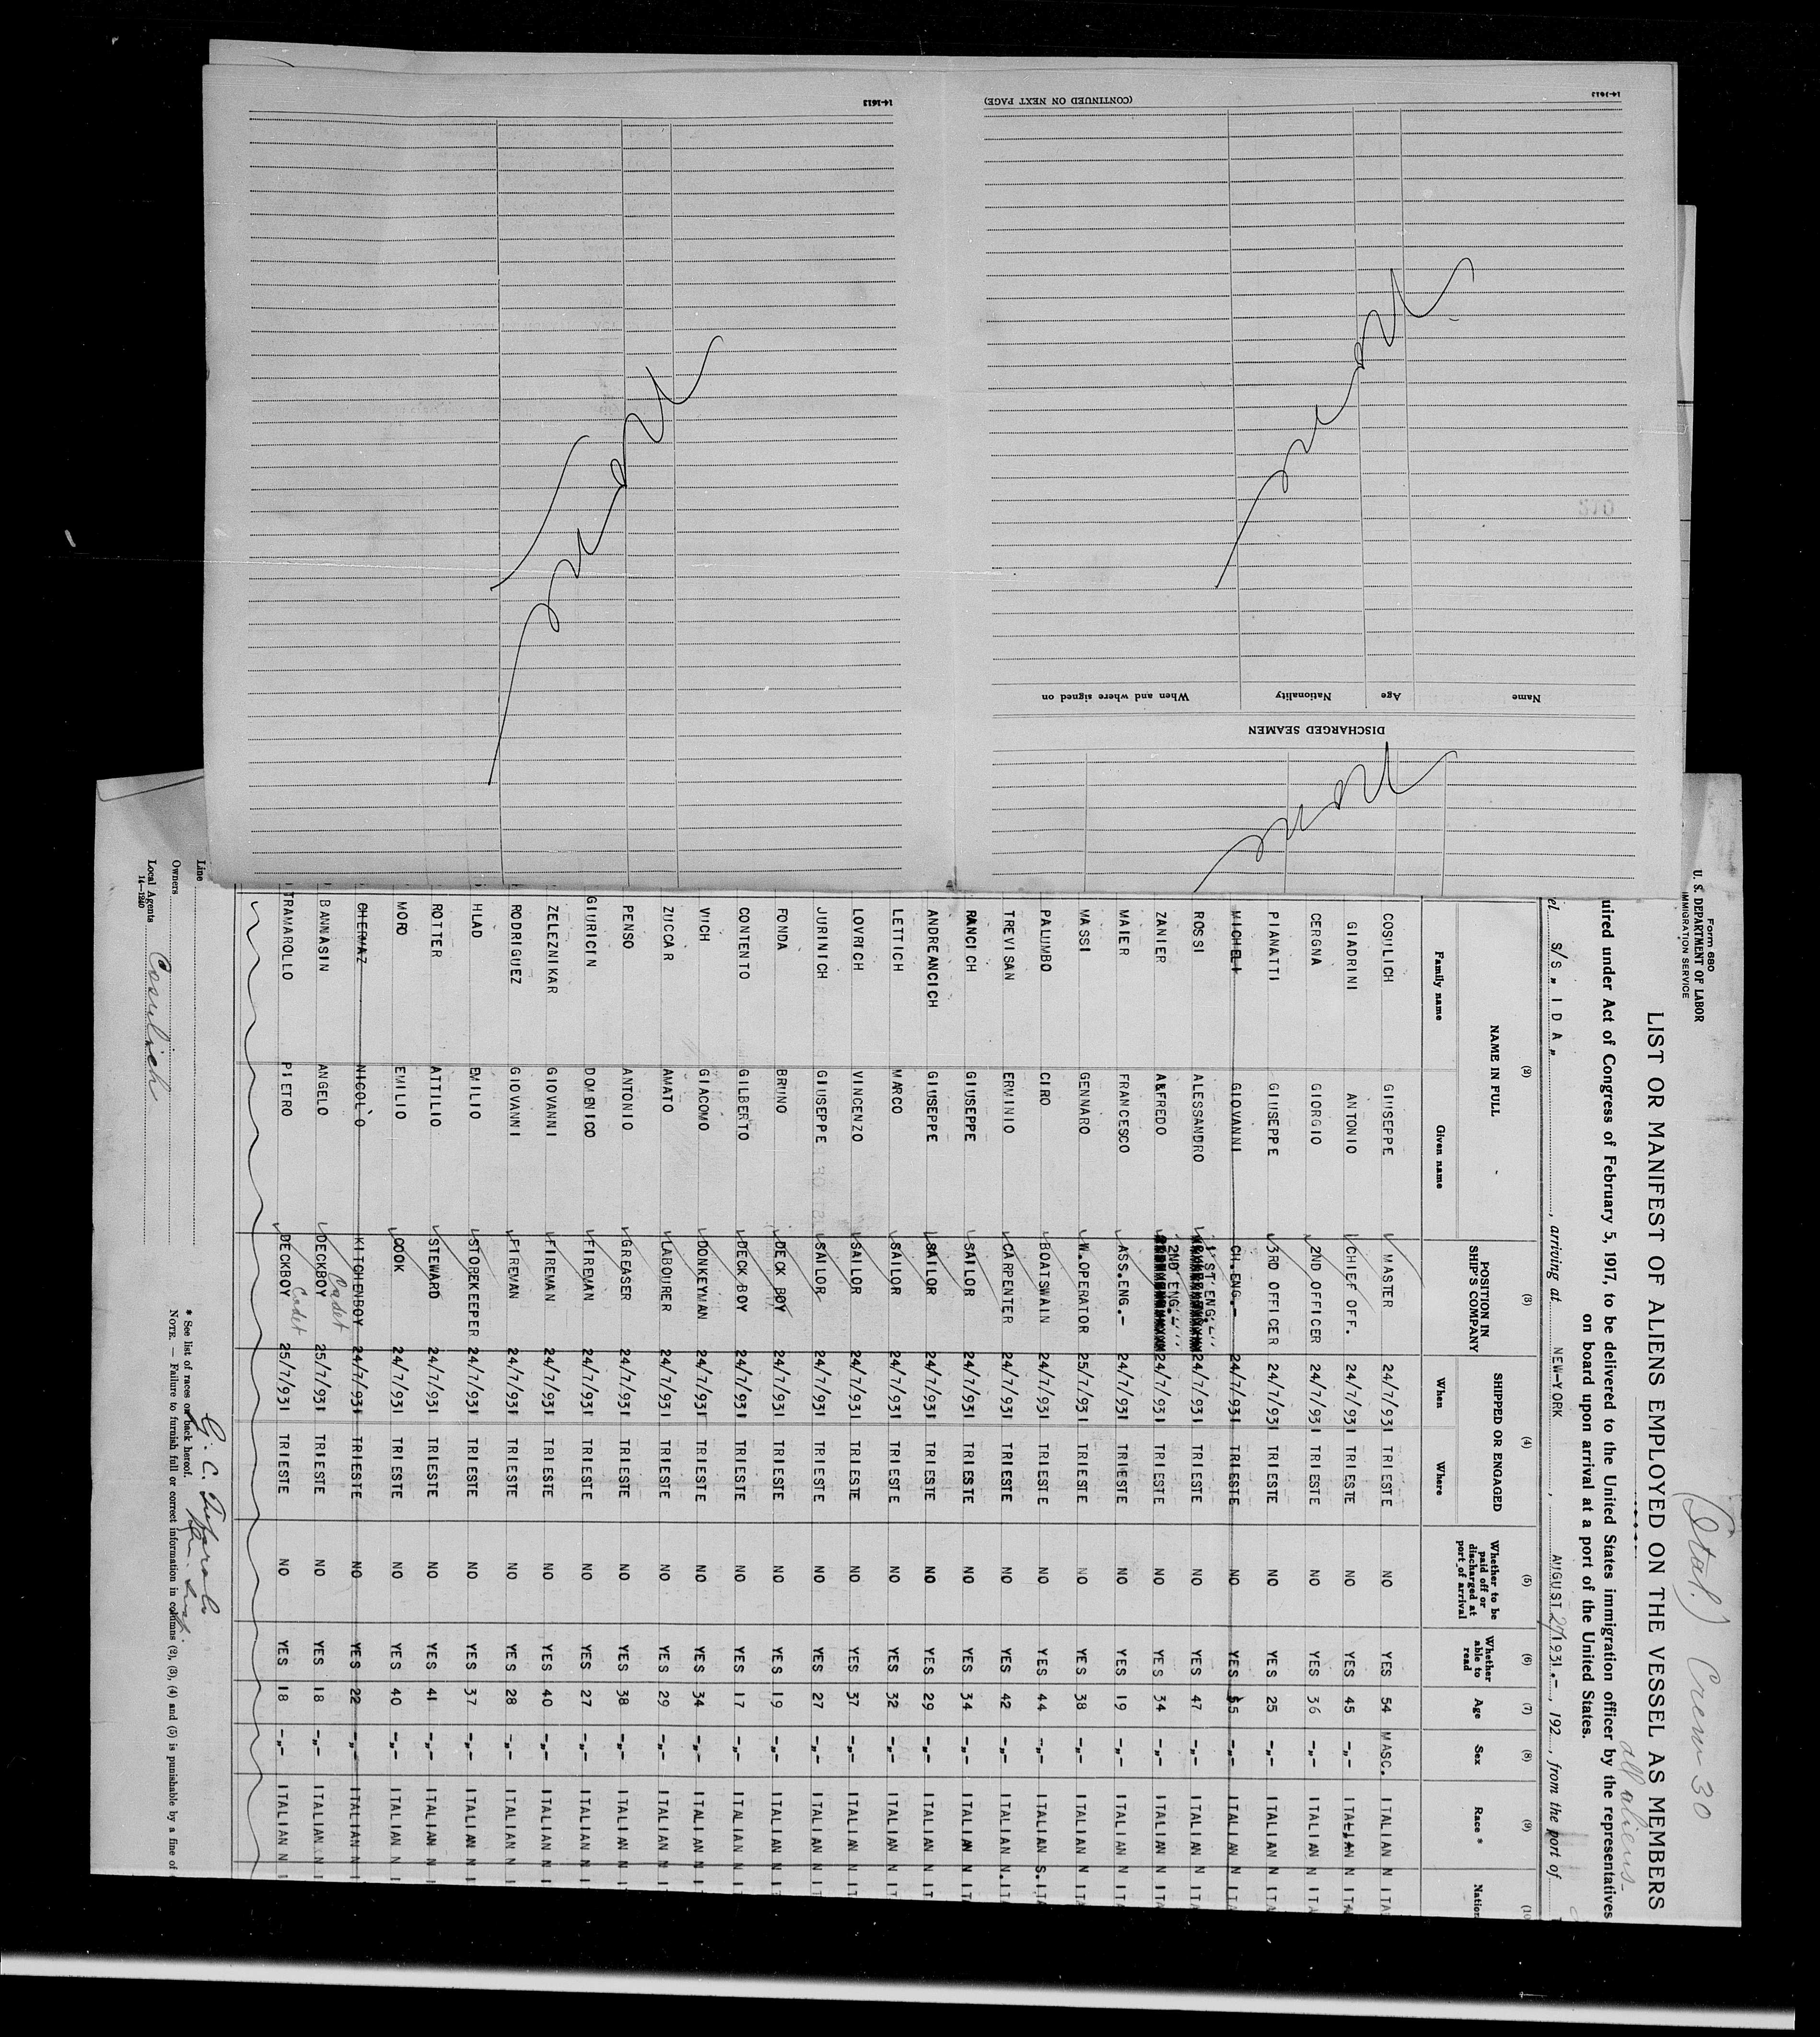 14-1613
14-1613
(CONTINUED ON NEXT PAGE)
DISCHARGED SEAMEN
Name Age Nationality When and where signed on
none
none
none
Form 680
U. S. DEPARTMENT OF LABOR
IMMIGRATION SERVICE
(Ital.) Crew 30
all aliens
LIST OR MANIFEST OF ALIENS EMPLOYED ON THE VESSEL AS MEMBERS
uired under Act of Congress of February 5, 1917, to be delivered to the United States immigration officer by the representatives
on board upon arrival at a port of the United States.
el S/S " I D A ", arriving at NEW-YORK, AUGUST 27/1931.-, 192, from the port of
(2) (3) (4) (5) (6) (7) (8) (9) (10
NAME IN FULL POSITION IN SHIP'S COMPANY SHIPPED OR ENGAGED Whether to be paid off or discharged at port of arrival Whether able to read Age Sex Race * Nation
Family name Given name When Where
COSULICH GIUSEPPE MASTER 24/7/931 TRIESTE NO YES 54 MASC. ITALIAN N ITA
GIADRINI ANTONIO CHIEF OFF. 24/7/931 TRIESTE NO YES 45 -"- ITALIAN N ITA
CERGNA GIORGIO 2ND OFFICER 24/7/931 TRIESTE NO YES 36 -"- ITALIAN N ITA
PIANATTI GIUSEPPE 3RD OFFICER 24/7/931 TRIESTE NO YES 25 -"- ITALIAN N ITA
MICHELI GIOVANNI CH.ENG.- 24/7/931 TRIESTE NO YES 55 -"- ITALIAN N ITA
ROSSI ALESSANDRO 1'ST ENG. 24/7/931 TRIESTE NO YES 47 -"- ITALIAN N ITA
ZANIER ALFREDO 2ND ENG.- 24/7/931 TRIESTE NO YES 34 -"- ITALIAN N ITA
MAIER FRANCESCO ASS.ENG.- 24/7/931 TRIESTE NO YES 19 -"- ITALIAN N ITA
MASSI GENNARO W.OPERATOR 25/7/931 TRIESTE NO YES 38 -"- ITALIAN N ITA
PALUMBO CIRO BOATSWAIN 24/7/931 TRIESTE NO YES 44 -"- ITALIAN S.ITA
TREVISAN ERMINIO CARPENTER 24/7/931 TRIESTE NO YES 42 -"- ITALIAN N.ITA
RANCICH GIUSEPPE SAILOR 24/7/931 TRIESTE NO YES 34 -"- ITALIAN N ITA
ANDREANCICH GIUSEPPE SAILOR 24/7/931 TRIESTE NO YES 29 -"- ITALIAN N IT
LETTICH MARCO SAILOR 24/7/931 TRIESTE NO YES 32 -"- ITALIAN N IT
LOVRICH VINCENZO SAILOR 24/7/931 TRIESTE NO YES 37 -"- ITALIAN N IT
JURINICH GIUSEPPE SAILOR 24/7/931 TRIESTE NO YES 27 -"- ITALIAN N IT
FONDA BRUNO DECK BOY 24/7/931 TRIESTE NO YES 19 -"- ITALIAN N IT
CONTENTO GILBERTO DECK BOY 24/7/931 TRIESTE NO YES 17 -"- ITALIAN N IT
VUCH GIACOMO DONKEYMAN 24/7/931 TRIESTE NO YES 34 -"- ITALIAN N I
ZUCCAR AMATO LABOURER 24/7/931 TRIESTE NO YES 29 -"- ITALIAN N I
PENSO ANTONIO GREASER 24/7/931 TRIESTE NO YES 38 -"- ITALIAN N I
GIURICIN DOMENICO FIREMAN 24/7/931 TRIESTE NO YES 27 -"- ITALIAN N I
ZELEZNIKAR GIOVANNI FIREMAN 24/7/931 TRIESTE NO YES 40 -"- ITALIAN N I
RODRIGUEZ GIOVANNI FIREMAN 24/7/931 TRIESTE NO YES 28 -"- ITALIAN N I
HLAD EMILIO STOREKEEPER 24/7/931 TRIESTE NO YES 37 -"- ITALIAN N I
ROTTER ATTILIO STEWARD 24/7/931 TRIESTE NO YES 41 -"- ITALIAN N I
MORO EMILIO COOK 24/7/931 TRIESTE NO YES 40 -"- ITALIAN N I
CHERMAZ NICOLÒ KITCHENBOY 24/7/931 TRIESTE NO YES 22 -"- ITALIAN N I
BANNASIN ANGELO DECKBOY Cadet 25/7/931 TRIESTE NO YES 18 -"- ITALIAN N I
TRAMAROLLO PIETRO DECKBOY Cadet 25/7/931 TRIESTE NO YES 18 -"- ITALIAN N I
Line
Owners
Local Agents Cosulich
14-1240
G. C.
* See list of races on back hereof.
NOTE. — Failure to furnish full or correct information in columns (2), (3), (4) and (5) is punishable by a fine of